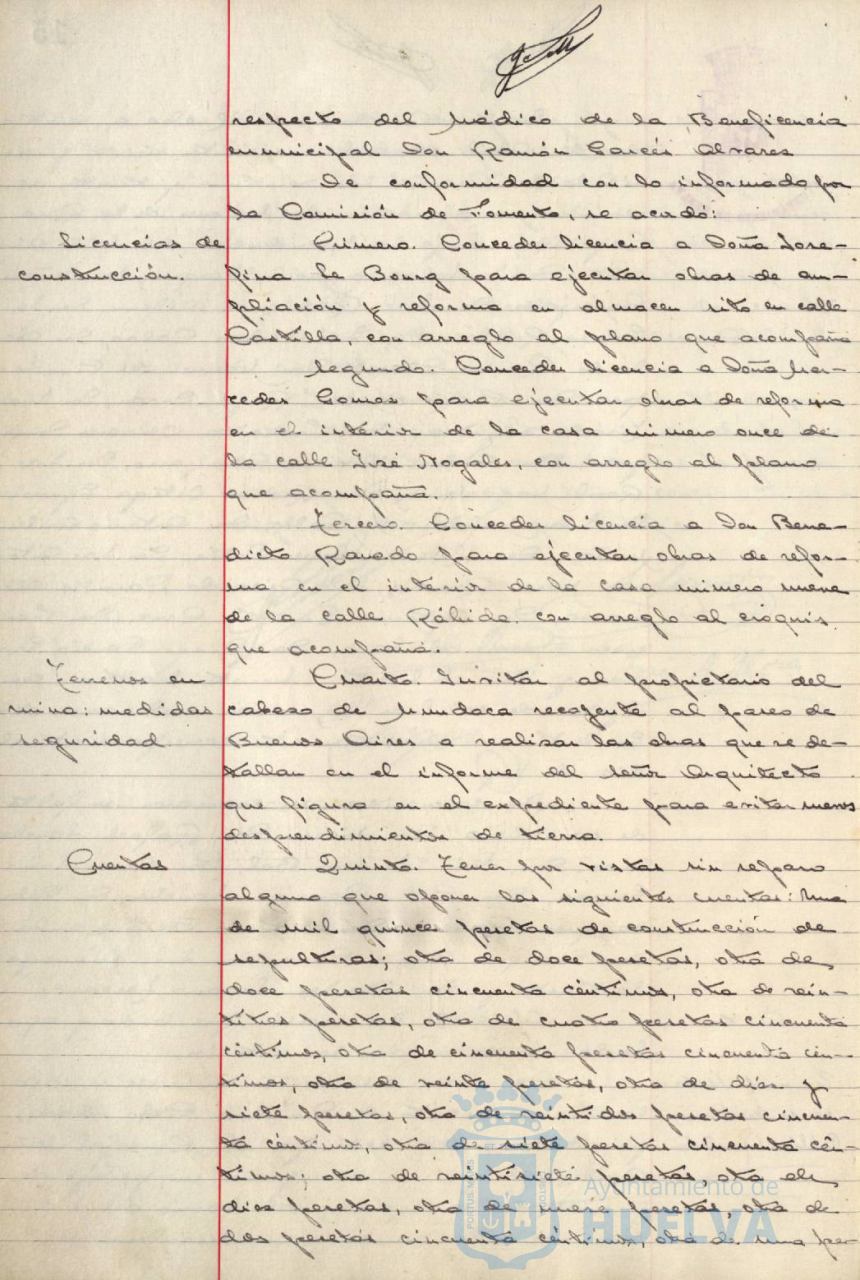 respecto del Médico de la Beneficencia
municipal Don Ramón Garcés Alvares
De conformidad con lo informado por
la Comisión de Fomento, se acordó:
Licencias de
construcción.
Primero. Conceder licencia a Doña Jose-
fina Le Bourg para ejecutar obras de am-
pliación y reforma en almacen sito en calle
Castilla, con arreglo al plano que acompaña
Segundo. Conceder licencia a Doña Mer-
cedes Gomez para ejecutar obras de reforma
en el interior de la casa número once de
la calle José Nogales, con arreglo al plano
que acompaña.
Tercero. Conceder licencia a Don Bene-
dicto para ejecutar obras de refor-
ma en el interior de la casa número nueve
de la calle Rábida con arreglo al croquis
que acompaña.
Terrenos en
ruina: medidas
seguridad
Cuarto. Invitar al propietario del
cabezo de Mundaca recayente al paseo de
Buenos Aires a realizar las obras que se de-
tallan en el informe del señor Arquitecto
que figura en el expediente para evitar nuevos
desprendimientos de tierra.
Cuentas
Quinto. Tener por vistas sin reparo
alguno que oponer las siguientes cuentas: Una
de mil quince pesetas de construcción de
sepulturas; otra de doce pesetas, otra de
doce pesetas cincuenta céntimos, otra de vein-
titrés pesetas, otra de cuatro pesetas cincuenta
céntimos, otra de cincuenta pesetas cincuenta cén-
timos, otra de veinte pesetas, otra de diez y
siete pesetas, otra de veintidos pesetas cincuen-
ta céntimos, otra de siete pesetas cincuenta cén-
timos; otra de veintisiete pesetas, otra de
diez pesetas, otra de nueve pesetas, otra de
dos pesetas cincuenta céntimos, otra de una pe-
Ayuntamiento de
HUELVA